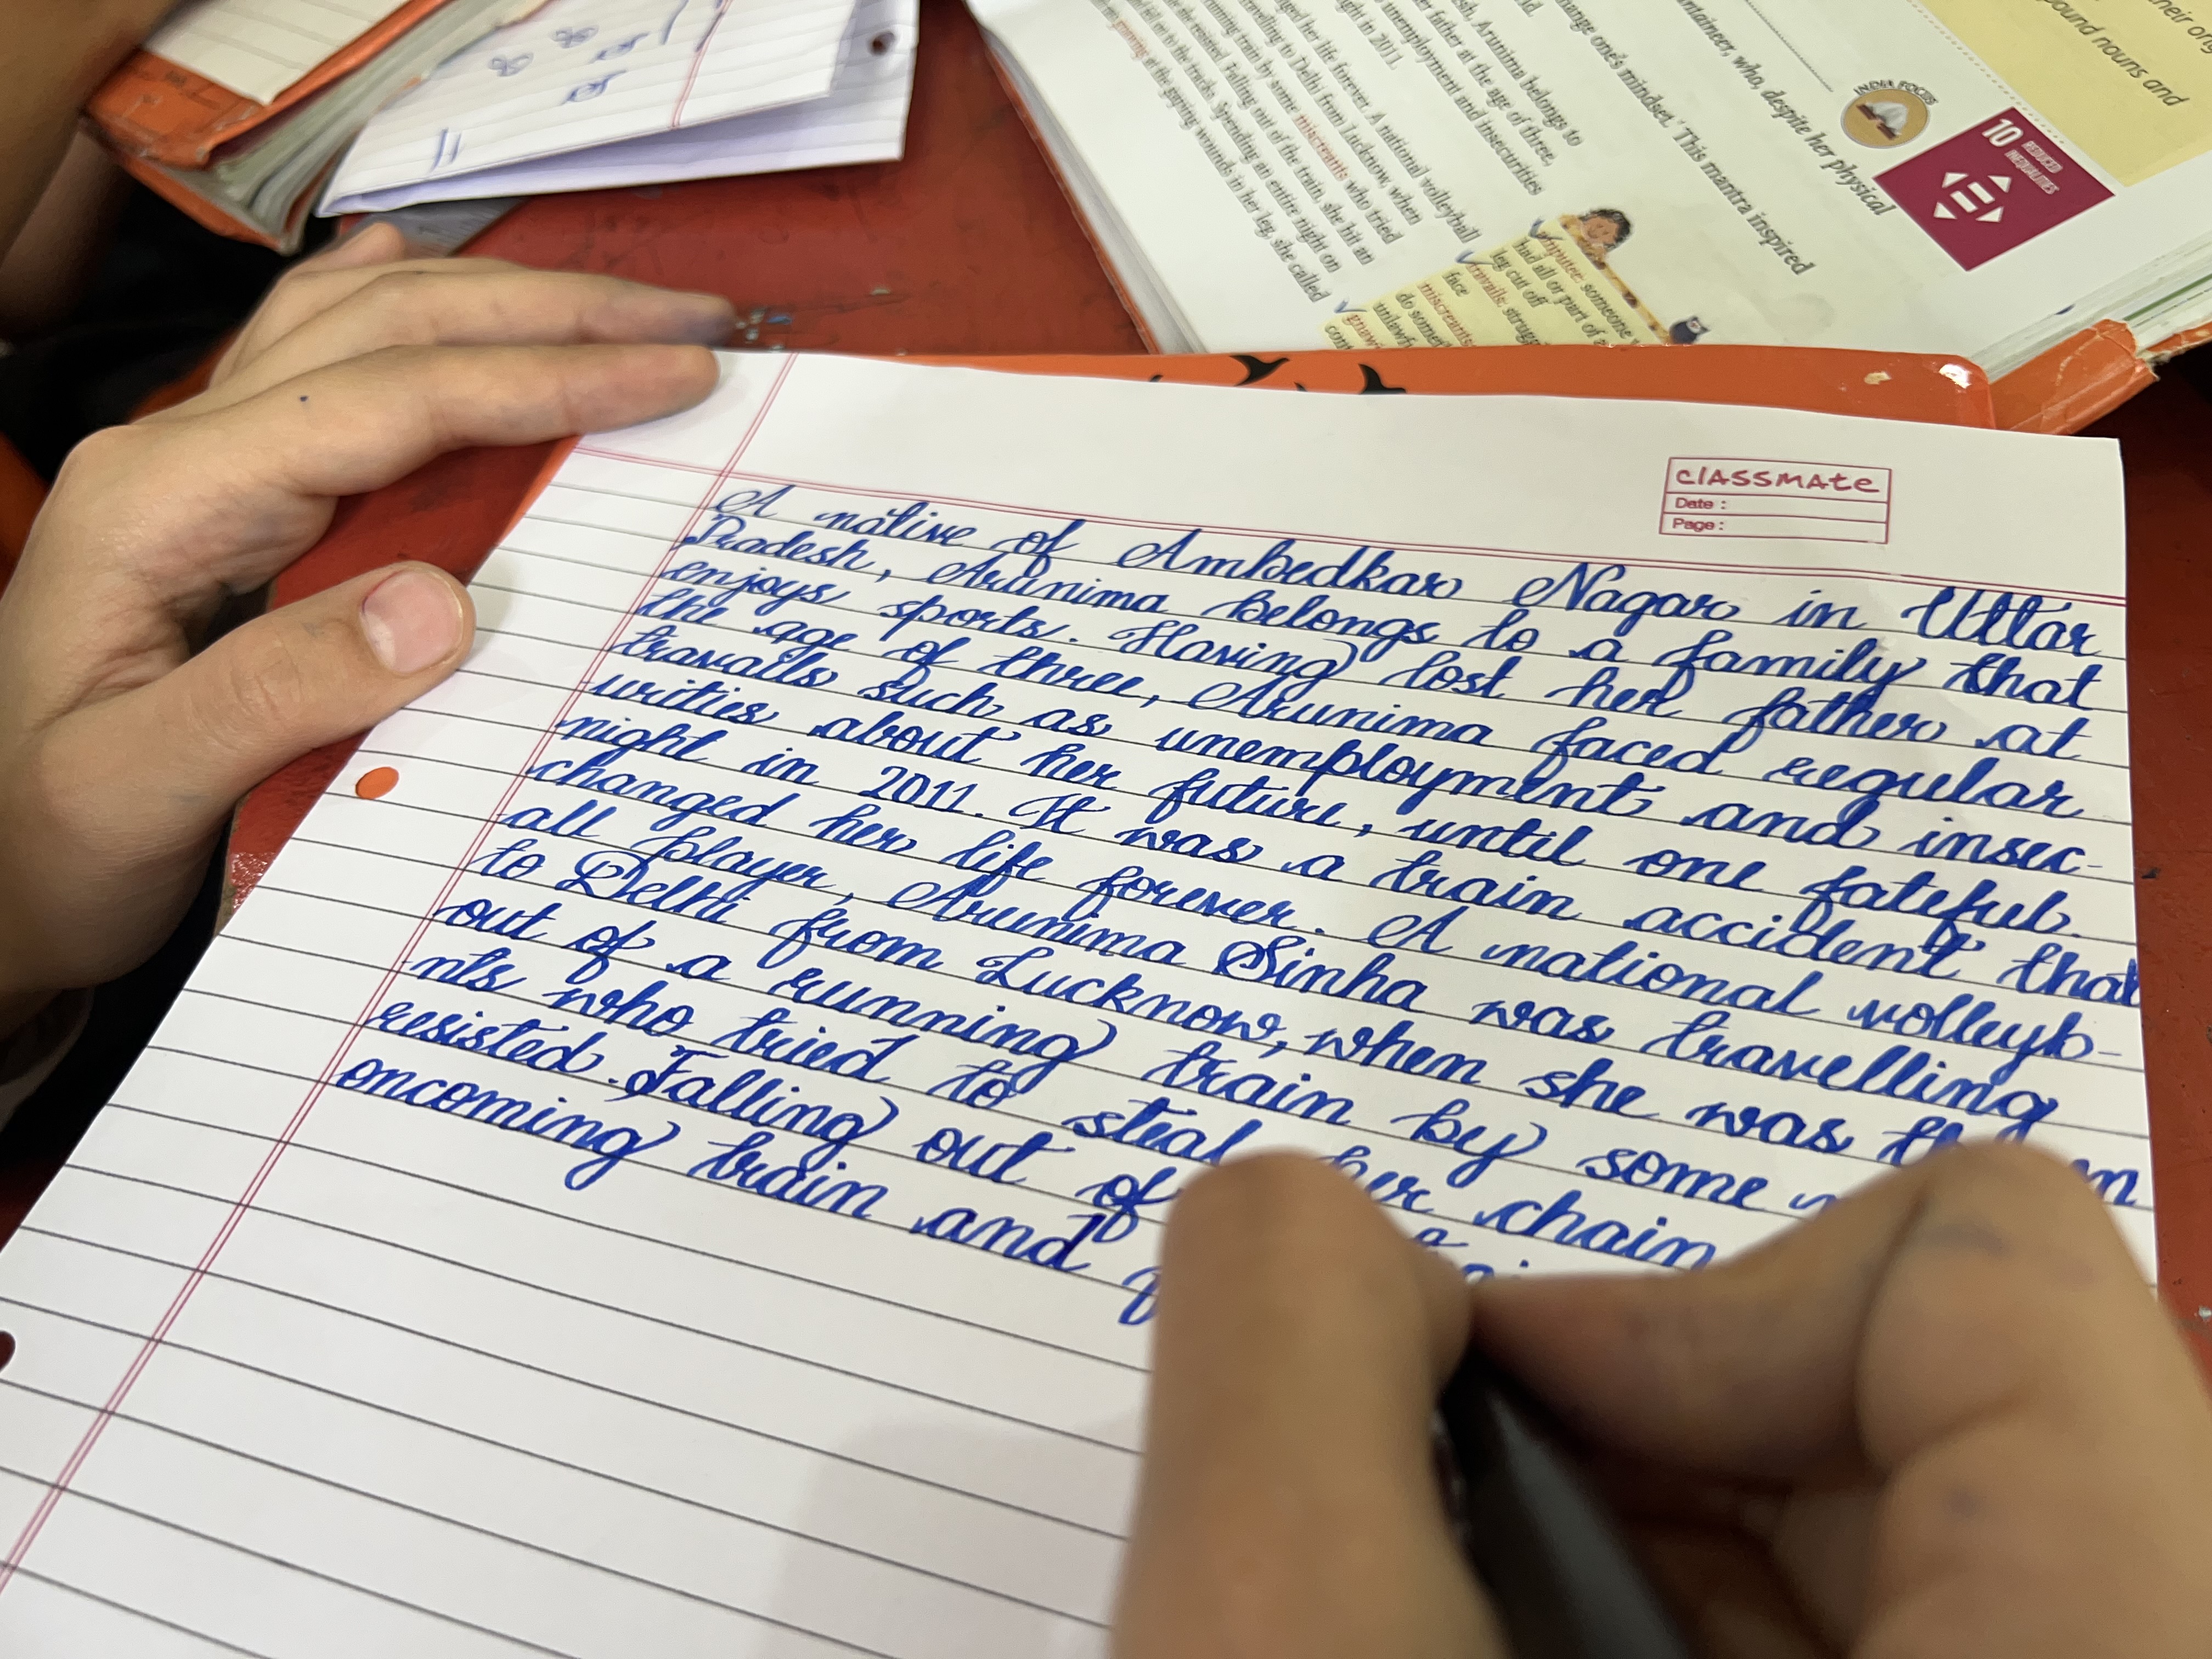 classmate
Date :
Page :
A native of Ambedkar Nagar in Uttar
Pradesh, Arunima belongs to a family that
enjoys sports. Having lost her father at
the age of three, Arunima faced regular
travails such as unemployment and insec-
urities about her future, until one fateful
night in 2011. It was a train accident that
changed her life forever. A national volleyb-
all player, Arunima Sinha was travelling
to Delhi from Lucknow, when she was
out of a running train by some
nts who tried to steal her chain
resisted. Falling out of
oncoming train and
their
pound nouns and
INDIA FOCUS
10 REDUCED INEQUALITIES
ntaineer, who, despite her physical
hange one's mindset.' This mantra inspired
sh, Arunima belongs to
er father at the age of three,
unemployment and insecurities
ght in 2011.
ged her life forever. A national volleyball
velling to Delhi from Lucknow, when
running train by some miscreants who tried
she resisted. Falling out of the train, she hit an
fell on to the tracks. Spending an entire night on
gnawing at the gaping wounds in her leg, she called
amputee: someone
had all or part of a
leg cut off
travails: strugg
face
miscreants
do some
unlawf
gnawi